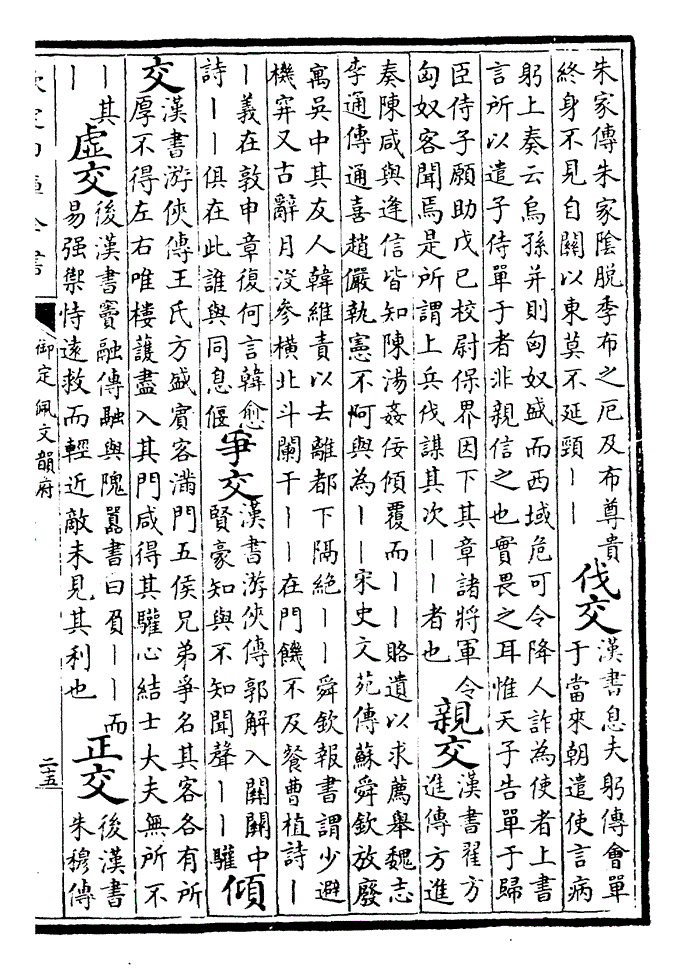 朱家傳朱家陰脫季布之厄及布尊貴
終身不見自關以東莫不延頸｜｜
伐交
漢書息夫躬傳會單
于當來朝遣使言病
躬上奏云烏孫并則匈奴盛而西域危可令降人詐為使者上書
言所以遣子侍單于者非親信之也實畏之耳惟天子告單于歸
臣侍子願助戊已校尉保界因下其章諸將軍令
匈奴客聞焉是所謂上兵伐謀其次｜｜者也
親交
漢書翟方
進傳方進
奏陳咸與逢信皆知陳湯姦佞傾覆而｜｜賂遺以求薦舉魏志
李通傳通喜趙儼執憲不阿與為｜｜宋史文苑傳蘇舜欽放廢
寓吳中其友人韓維責以去離都下隔絶｜｜舜欽報書謂少避
機穽又古辭月沒參橫北斗闌干｜｜在門饑不及餐曹植詩｜
｜義在敦申章復何言韓愈
詩｜｜俱在此誰與同息偃
爭交
漢書游俠傳郭解入關關中
賢豪知與不知聞聲｜｜驩
傾
交
漢書游俠傳王氏方盛賓客滿門五侯兄弟爭名其客各有所
厚不得左右唯樓護盡入其門咸得其驩心結士大夫無所不
｜其
｜
虛交
後漢書竇融傳融與隗囂書曰負｜｜而
易强禦恃遠救而輕近敵未見其利也
正交
後漢書
朱穆傳
欽定四庫全書
御定佩文韻府
二五